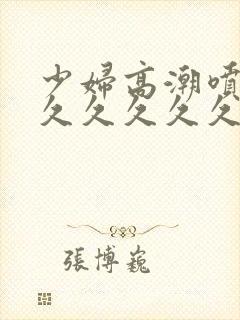 少婦高潮噴
久久久久久
張博巍